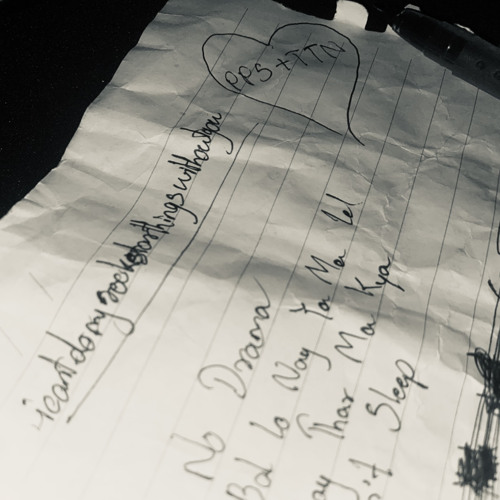 PPS + TTN
icantdomy thingswithoutyou
No Drama
Bal Lo Nay Ya Ma Lel
ay Thar Ma Kya
Sleep